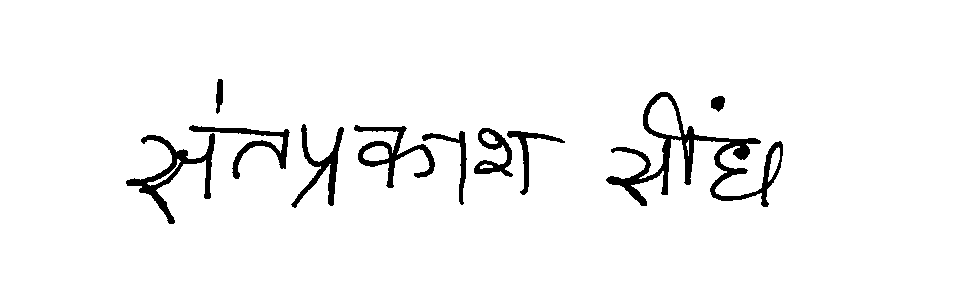 संतप्रकाश सींध